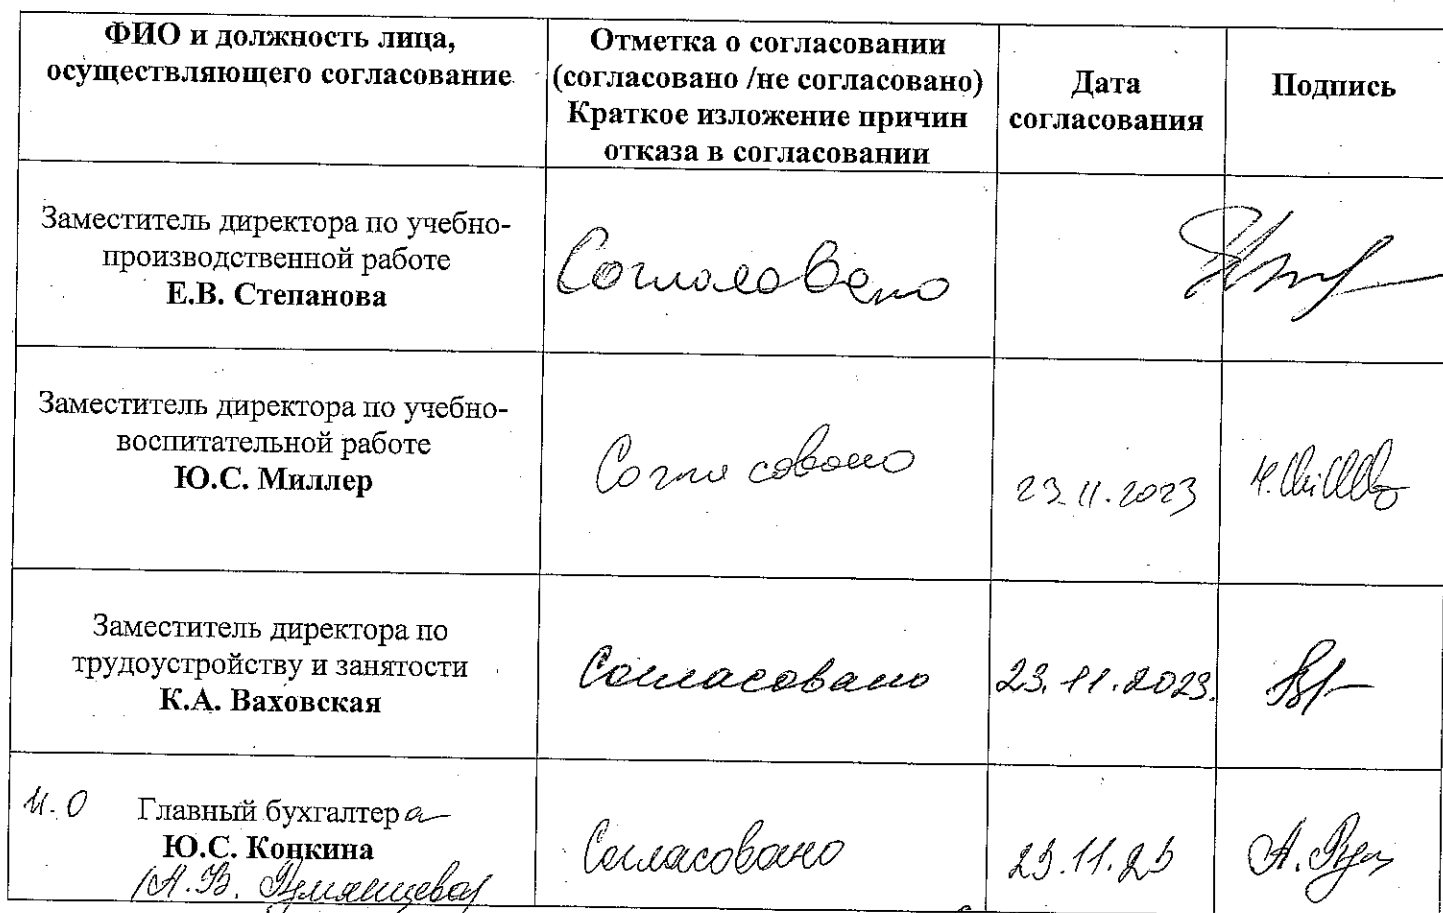 ФИО и должность лица,
осуществляющего согласование
Отметка о согласовании
(согласовано /не согласовано)
Краткое изложение причин
отказа в согласовании
Дата
согласования
Подпись
Заместитель директора по учебно-
производственной работе
Е.В. Степанова
Согласовано
Заместитель директора по учебно-
воспитательной работе
Ю.С. Миллер
Согласовано
23.11.2023
Заместитель директора по
трудоустройству и занятости
К.А. Ваховская
Согласовано
23.11.2023.
И.О Главный бухгалтера
Ю.С. Конкина
(А.В. Румянцева)
Согласовано
23.11.23